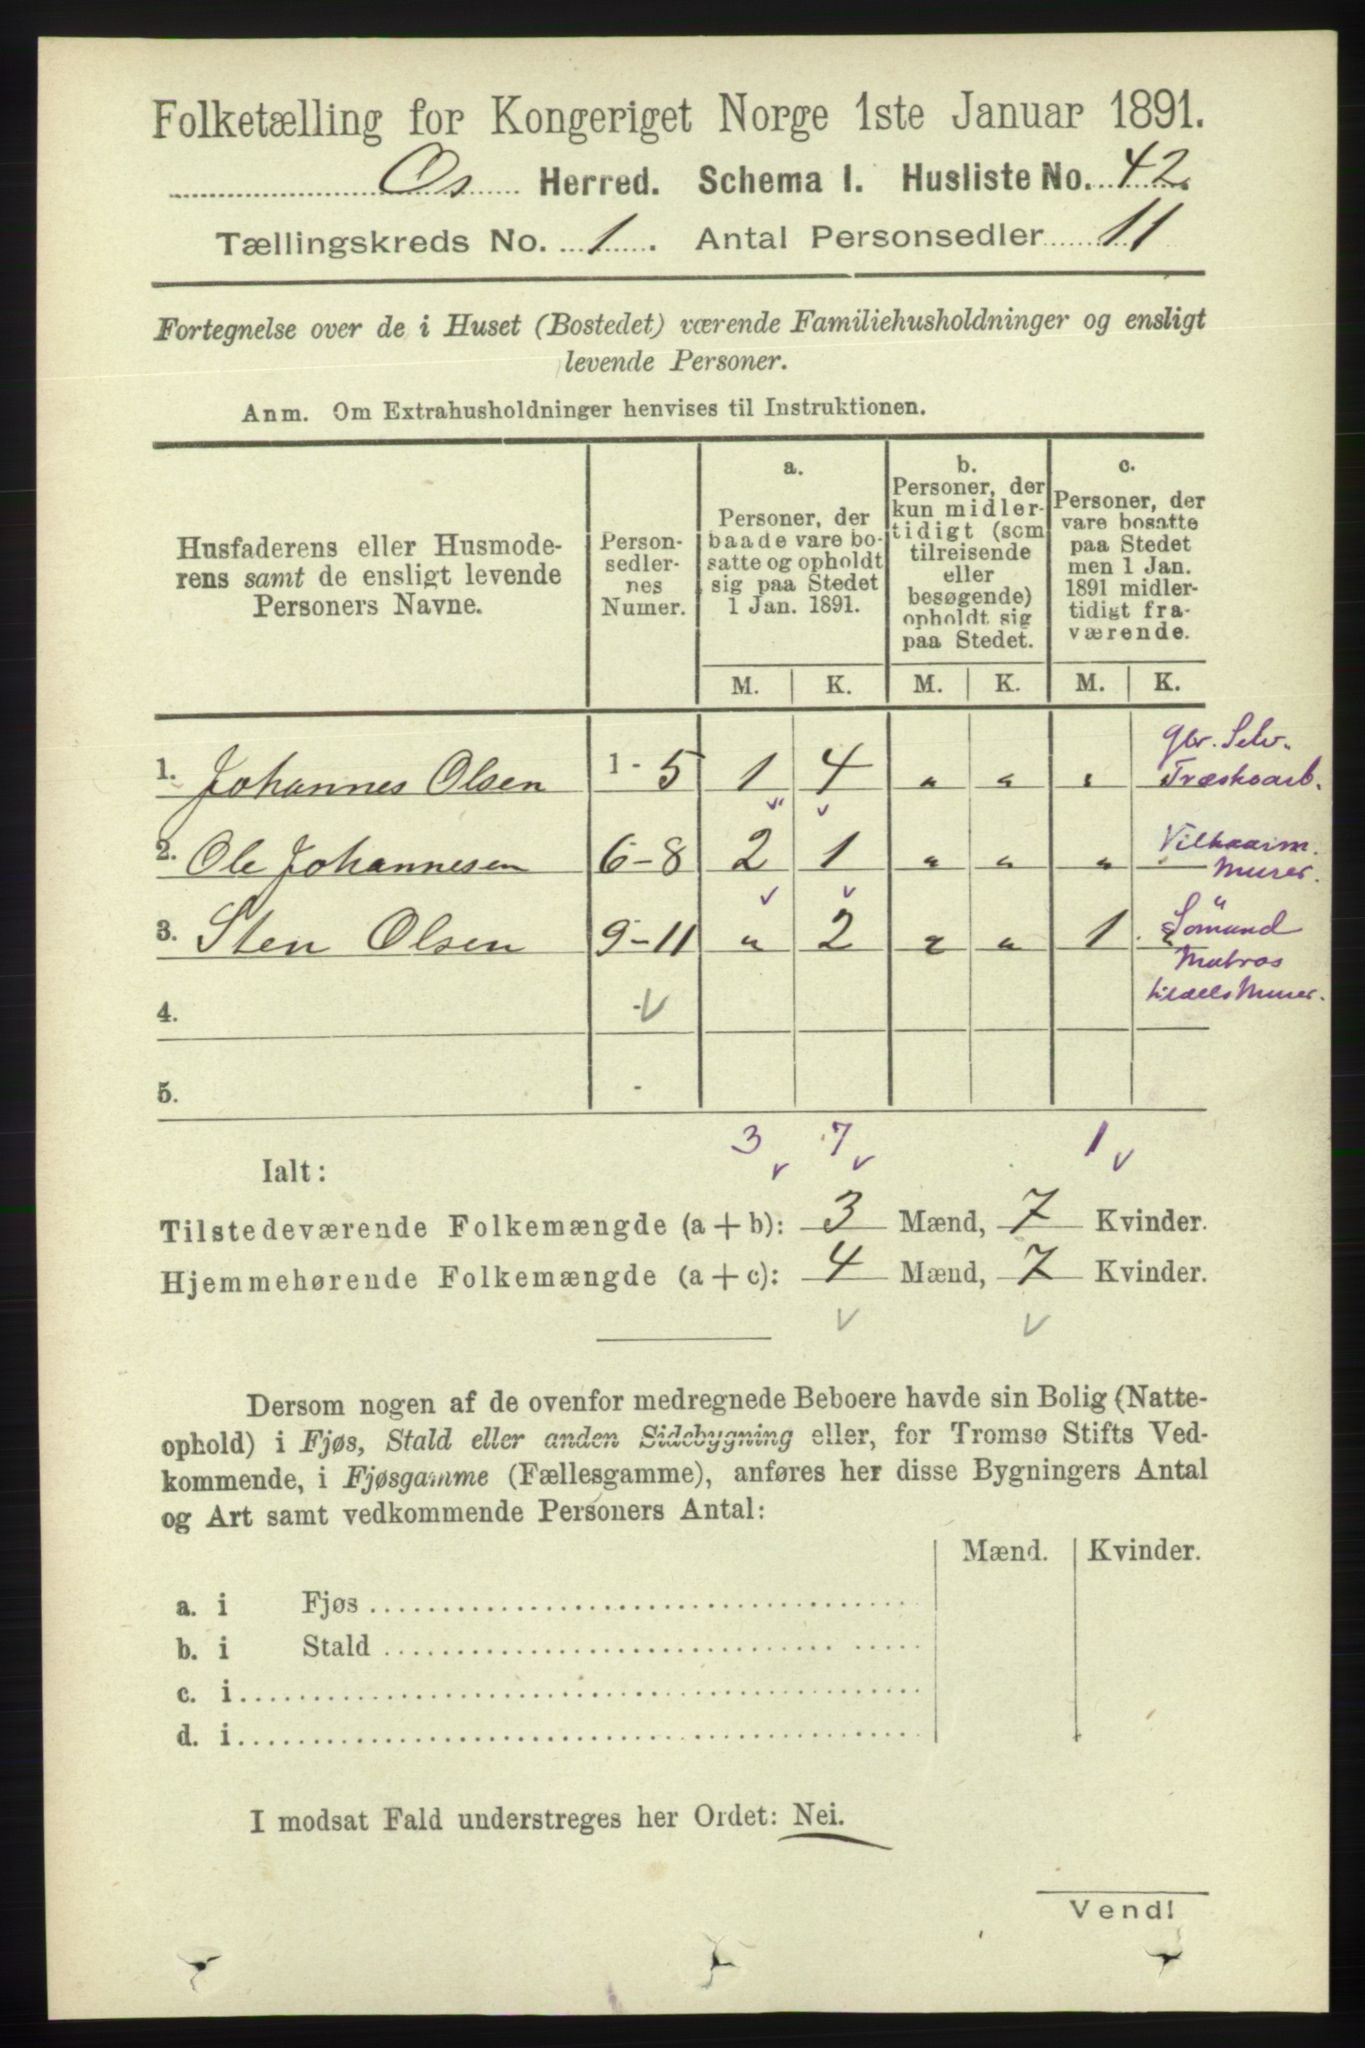 Folketælling for Kongeriget Norge 1ste Januar 1891.
Os Herred. Schema I. Husliste No. 42.
Tællingskreds No. 1. Antal Personsedler 11
Fortegnelse over de i Huset (Bostedet) værende Familiehusholdninger og ensligt
levende Personer.
Anm. Om Extrahusholdninger henvises til Instruktionen.
Husfaderens eller Husmode-
rens samt de ensligt levende
Personers Navne.
Person-
sedler-
nes
Numer.
a.
Personer, der
baade vare bo-
satte og opholdt
sig paa Stedet
1 Jan. 1891.
b.
Personer, der
kun midler-
tidigt (som
tilreisende
eller
besøgende)
opholdt sig
paa Stedet.
c.
Personer, der
vare bosatte
paa Stedet
men 1 Jan.
1891 midler-
tidigt fra-
værende.
M. K. M. K. M. K.
1. Johannes Olsen 1-5 1 4 " " " Gbr. Selv.
Træskoarb.
2. Ole Johannesen 6-8 2 1 " " "
Murer.
3. Sten Olsen 9-11 " 2 " " 1 " Sömand
Matros
tildels Murer.
4.
5.
3 7 1
Ialt:
Tilstedeværende Folkemængde (a + b): 3 Mænd, 7 Kvinder.
Hjemmehørende Folkemængde (a + c): 4 Mænd, 7 Kvinder.
Dersom nogen af de ovenfor medregnede Beboere havde sin Bolig (Natte-
ophold) i Fjøs, Stald eller anden Sidebygning eller, for Tromsø Stifts Ved-
kommende, i Fjøsgamme (Fællesgamme), anføres her disse Bygningers Antal
og Art samt vedkommende Personers Antal:
Mænd. Kvinder.
a. i Fjøs
b. i Stald
c. i
d. i
I modsat Fald understreges her Ordet: Nei.
Vend!